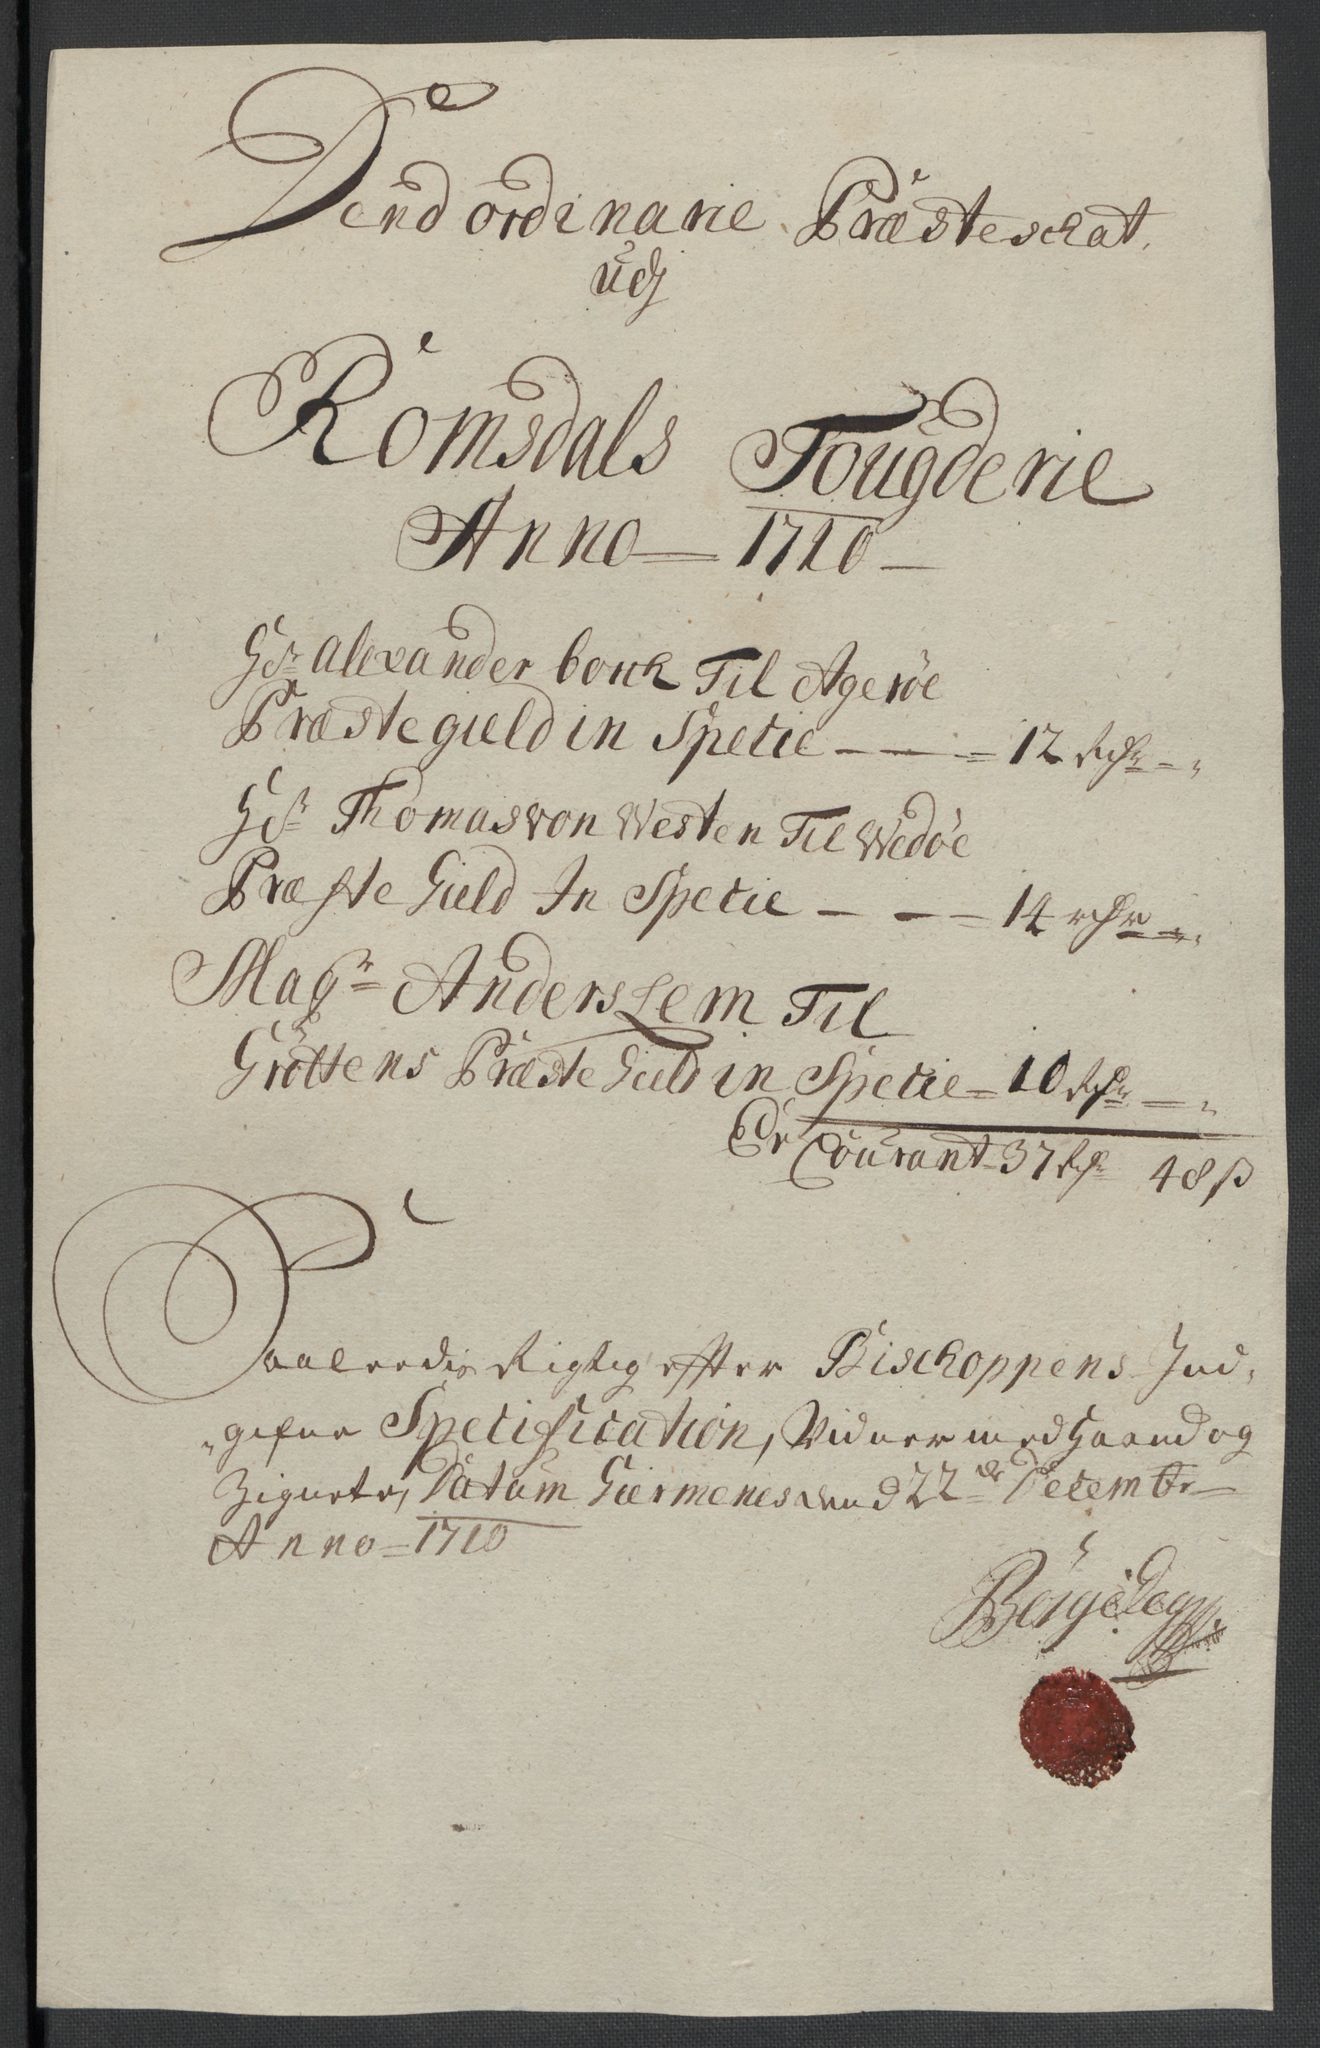 Dend ordinarie Præsteschat
udj
Romsdals Fougderie
Anno 1710
Hr Alexander bonk Til Agerøe
Præstegield in Spetie 12 Rdr
Hr Thomas von Westen Til Wedøe
Præste Gield In Spetie 14 rdr
Magr Anders Lem Til
Grøttens Præste Gield in Spetie 10 Rdr
Er Courant 37 Rdr 48 ß
Saaleedis Rigtig effter Bischoppens Ind,
gifne Spetification, Vidner med Haand og
Zignete, Datum Giermenes dend 22de Decembr
Anno 1710
Børge